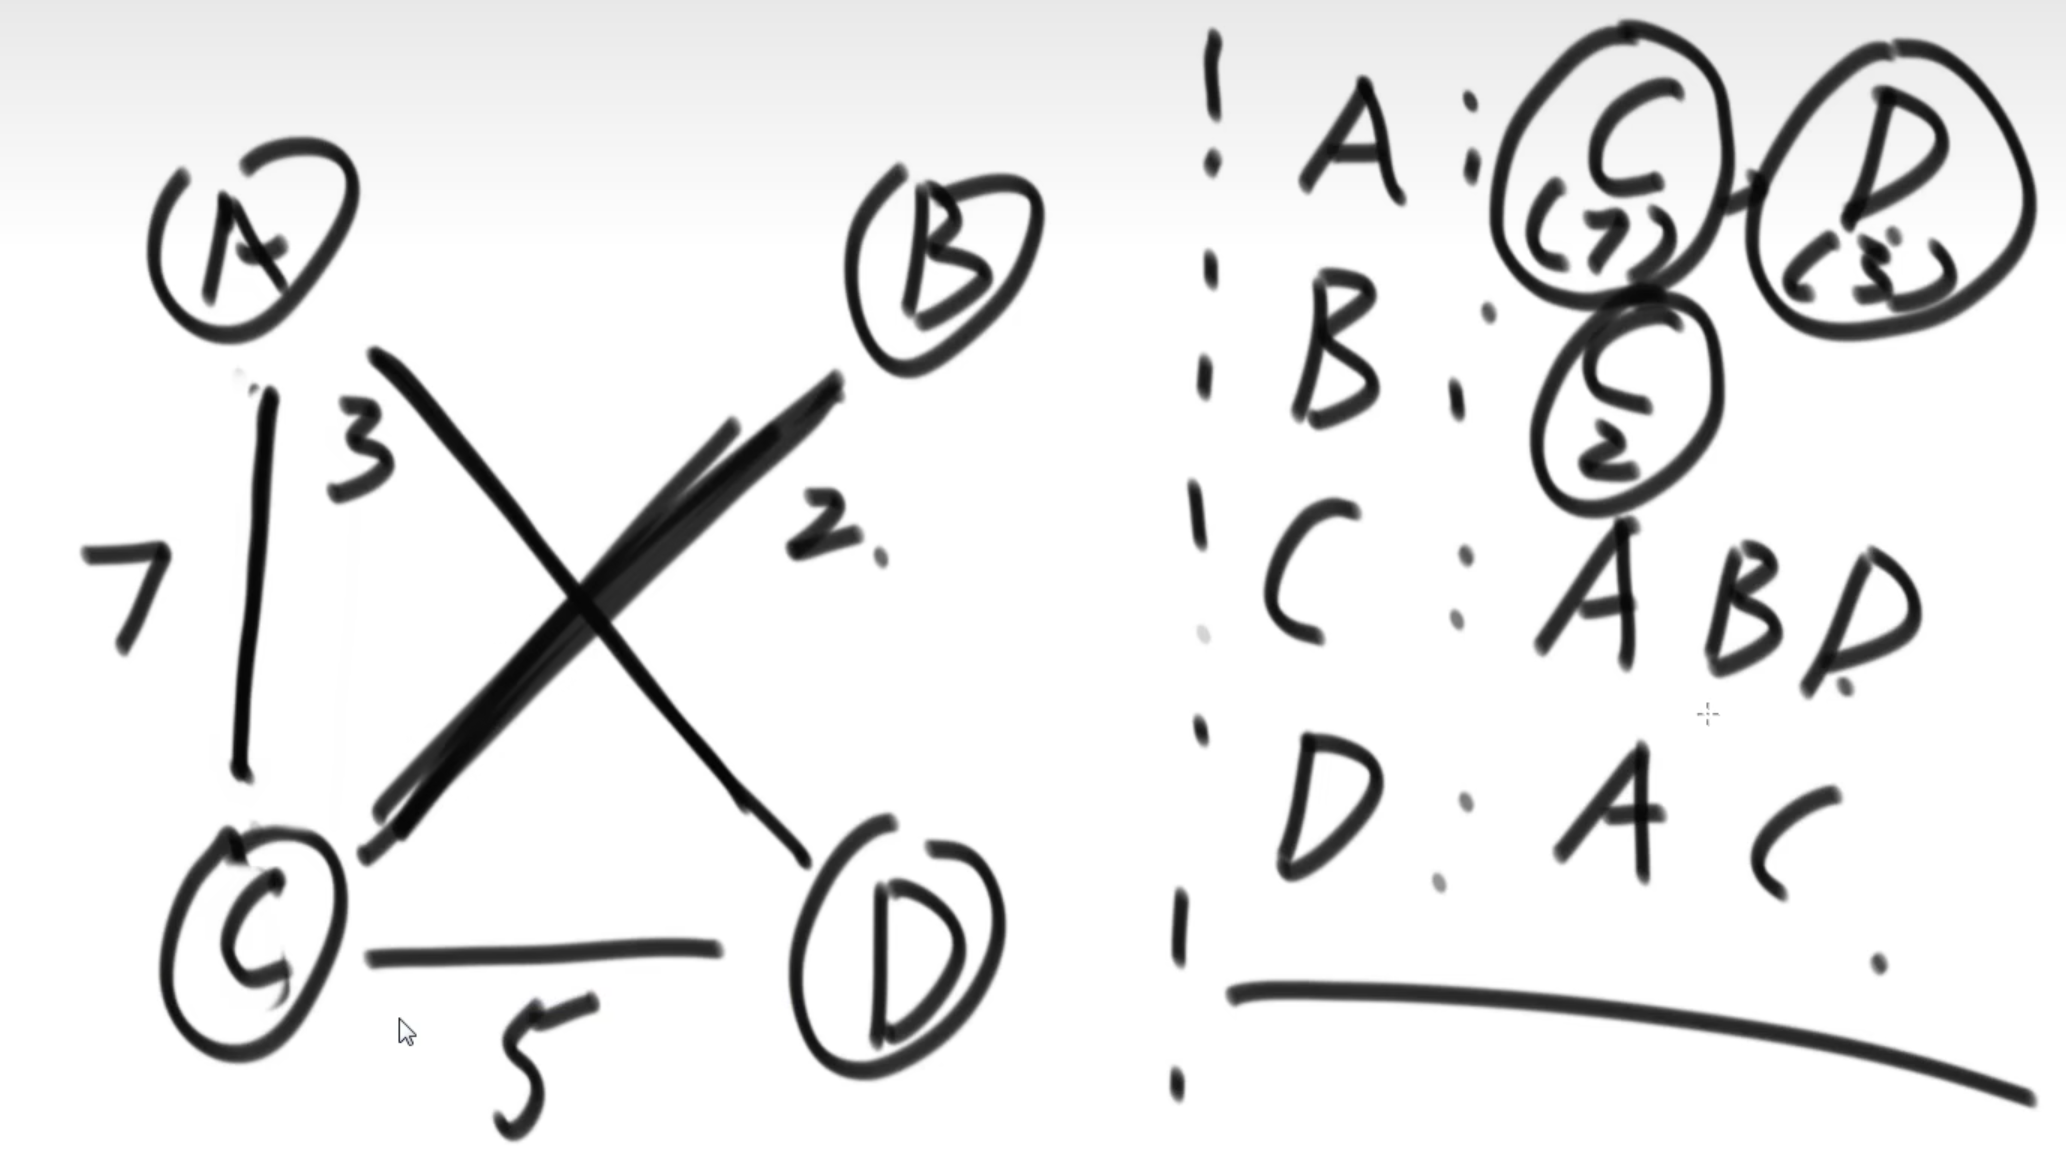 A B
3
7 2.
C D
5
A : C (7) - D (3)
B : C 2
C : A B D
D : A C